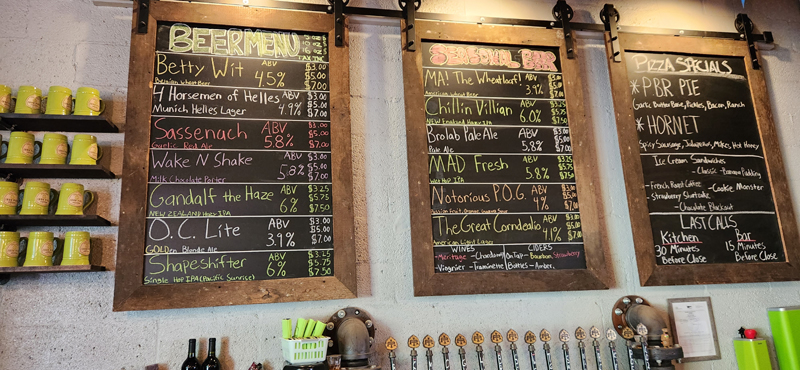 BEER MENU
TAX INC.
Betty Wit ABV 4.5% $3.00 $5.00 $7.00
Belgian Wheat Beer
4 Horsemen of Helles ABV 4.9% $3.00 $5.00 $7.00
Munich Helles Lager
Sassenach ABV 5.8% $3.00 $5.00 $7.00
Gaelic Red Ale
Wake N Shake ABV 5.2% $3.00 $5.00 $7.00
Milk Chocolate Porter
Gandalf the Haze ABV 6% $3.25 $5.75 $7.50
NEW ZEALAND Hazy IPA
O.C. Lite ABV 3.9% $3.00 $5.00 $7.00
GOLDen Blonde Ale
Shapeshifter ABV 6% $3.25 $5.75 $7.50
Single Hop IPA (Pacific Sunrise)
SEASONAL BAR
MA! The Wheatloaf! ABV 3.9% $3.00 $5.00 $7.00
American Wheat Beer
Chillin Villian ABV 6.0% $3.25 $5.75 $7.50
NEW ENGLAND Hazy IPA
Brolab Pale Ale ABV 5.8% $3.00 $5.00 $7.00
Pale Ale
MAD Fresh ABV 5.8% $3.25 $5.75 $7.50
Wet Hop IPA
Notorious P.O.G. ABV 4% $3.00 $5.00 $7.00
The Great Corndealio ABV 4.1% $3.00 $5.00 $7.00
American Light Lager
WINES CIDERS
Meritage - Chardonnay On Tap - Bourbon, Strawberry
Viognier - Traminette Bottles - Amber,
Pizza Specials
*PBR PIE
Garlic Butter Base, Pickles, Bacon, Ranch
*HORNET
Spicy Sausage, Jalapenos, Mikes Hot Honey
Ice Cream Sandwiches
- Classic - Banana Pudding
- French Roast Coffee - Cookie Monster
- Strawberry Shortcake
- Chocolate Blackout
LAST CALLS
Kitchen Bar
30 Minutes 15 Minutes
Before Close Before Close